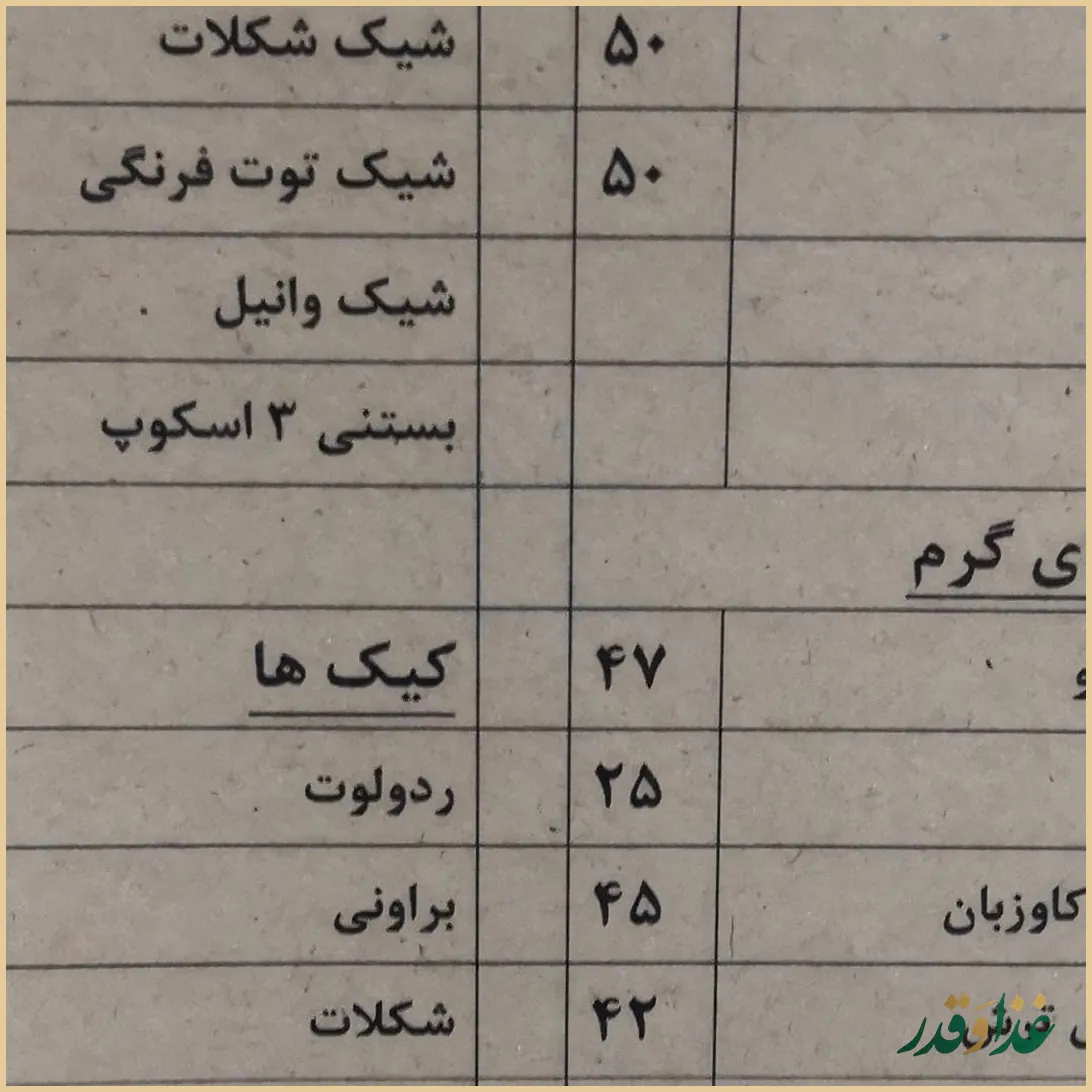 ۵۰ شیک شکلات
۵۰ شیک توت فرنگی
شیک وانیل
بستنی ۳ اسکوپ
ی گرم
۴۷ کیک ها
۲۵ ردولوت
کاوزبان ۴۵ براونی
۴۲ شکلات
غذا و قدر